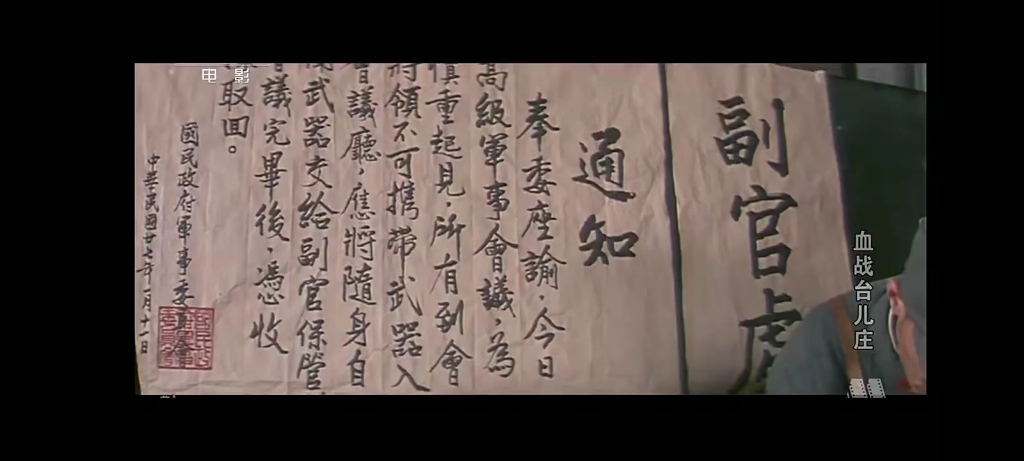 电影
副官處
通知
奉委座諭，今日
高級軍事會議，為
慎重起見，所有到會
將領不可携帶武器入
會議廳，應將隨身自
武器交給副官保管
會議完畢後，憑收
據取回。
國民政府軍事委員會
中華民國廿七年一月十一日
血战台儿庄